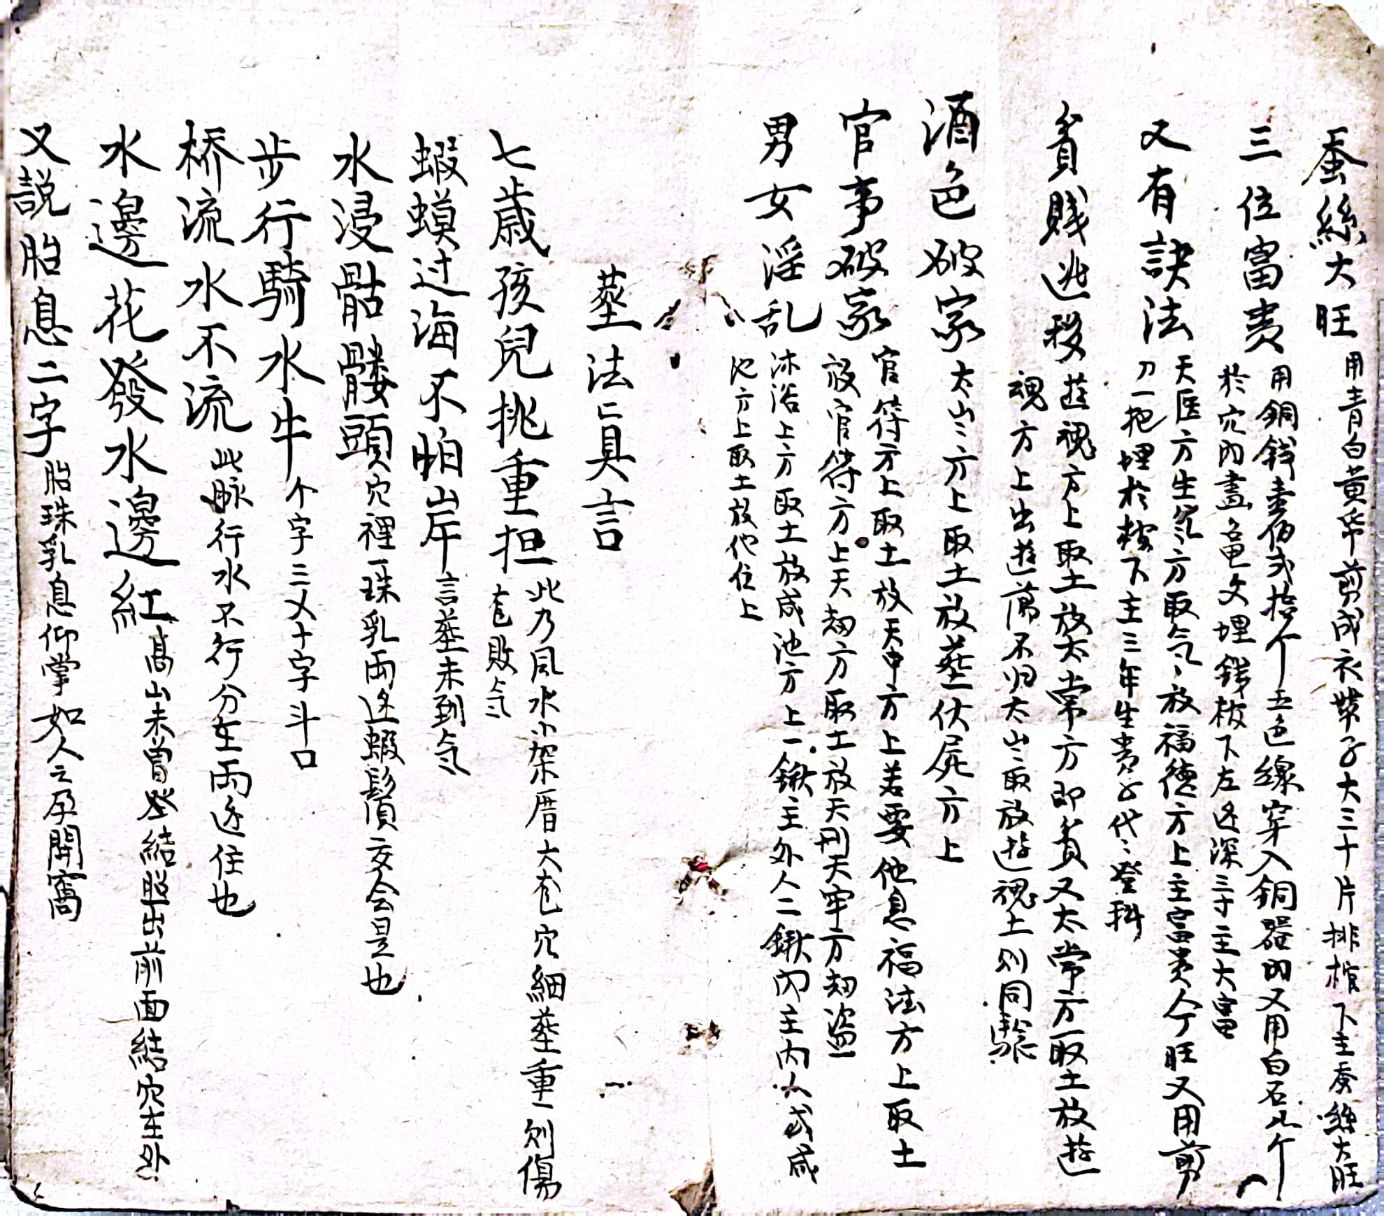 蚕絲大旺 用青白黄帋剪成衣帶子大三十片排棺下主蚕絲大旺
三位富貴 用銅錢壹伯弍拾个五色線穿入銅器内又用白石九个
於穴内畫龟文埋錢枝下左边深三寸主大富
又有訣法 天医方生炁方取气〻放福德方上主富贵人丁旺又用剪
刀一把埋於棺下主三年生贵子代〻登科
貧賤迯移 逰魂方上取土放太常方即貧又太常方取土放逰
魂方上出逰蕩不归太山〻取放逰魂土则同驗
酒色破家 太山〻方上取土放葬伏屍方上
官事破家 官符方上取土放天中方上若要他息福法方上取土
放官符方上天刼方取土放天刑天牢方刼盗
男女淫乱 沐浴上方取土放咸池方上一鍬主外人二鍬内主内人或咸
池方上取土放他住上
葬法亡真言
七歳孩兒挑重担 此乃風水小架厝大包穴細葬重一则傷
包敗气
蝦蟆过海不怕岸 言葬未到气
水浸骷髏頭 穴裡一珠乳两边蝦鬚交会是也
步行騎水牛 个字三乂十字斗口
桥流水不流 此脉行水不行分在両边住也
水邊花發水邊紅 髙山未曾坐結照出前面結穴在外
又説胎息二字 胎珠乳息仰掌如人之孕開窩